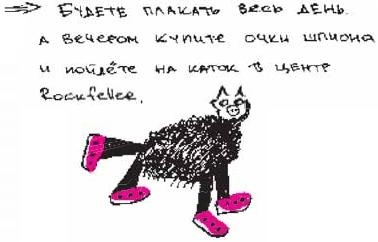 ⇒ Будете плакать весь день.
А вечером купите очки шпиона
и пойдёте на каток в центр
Rockfeller.